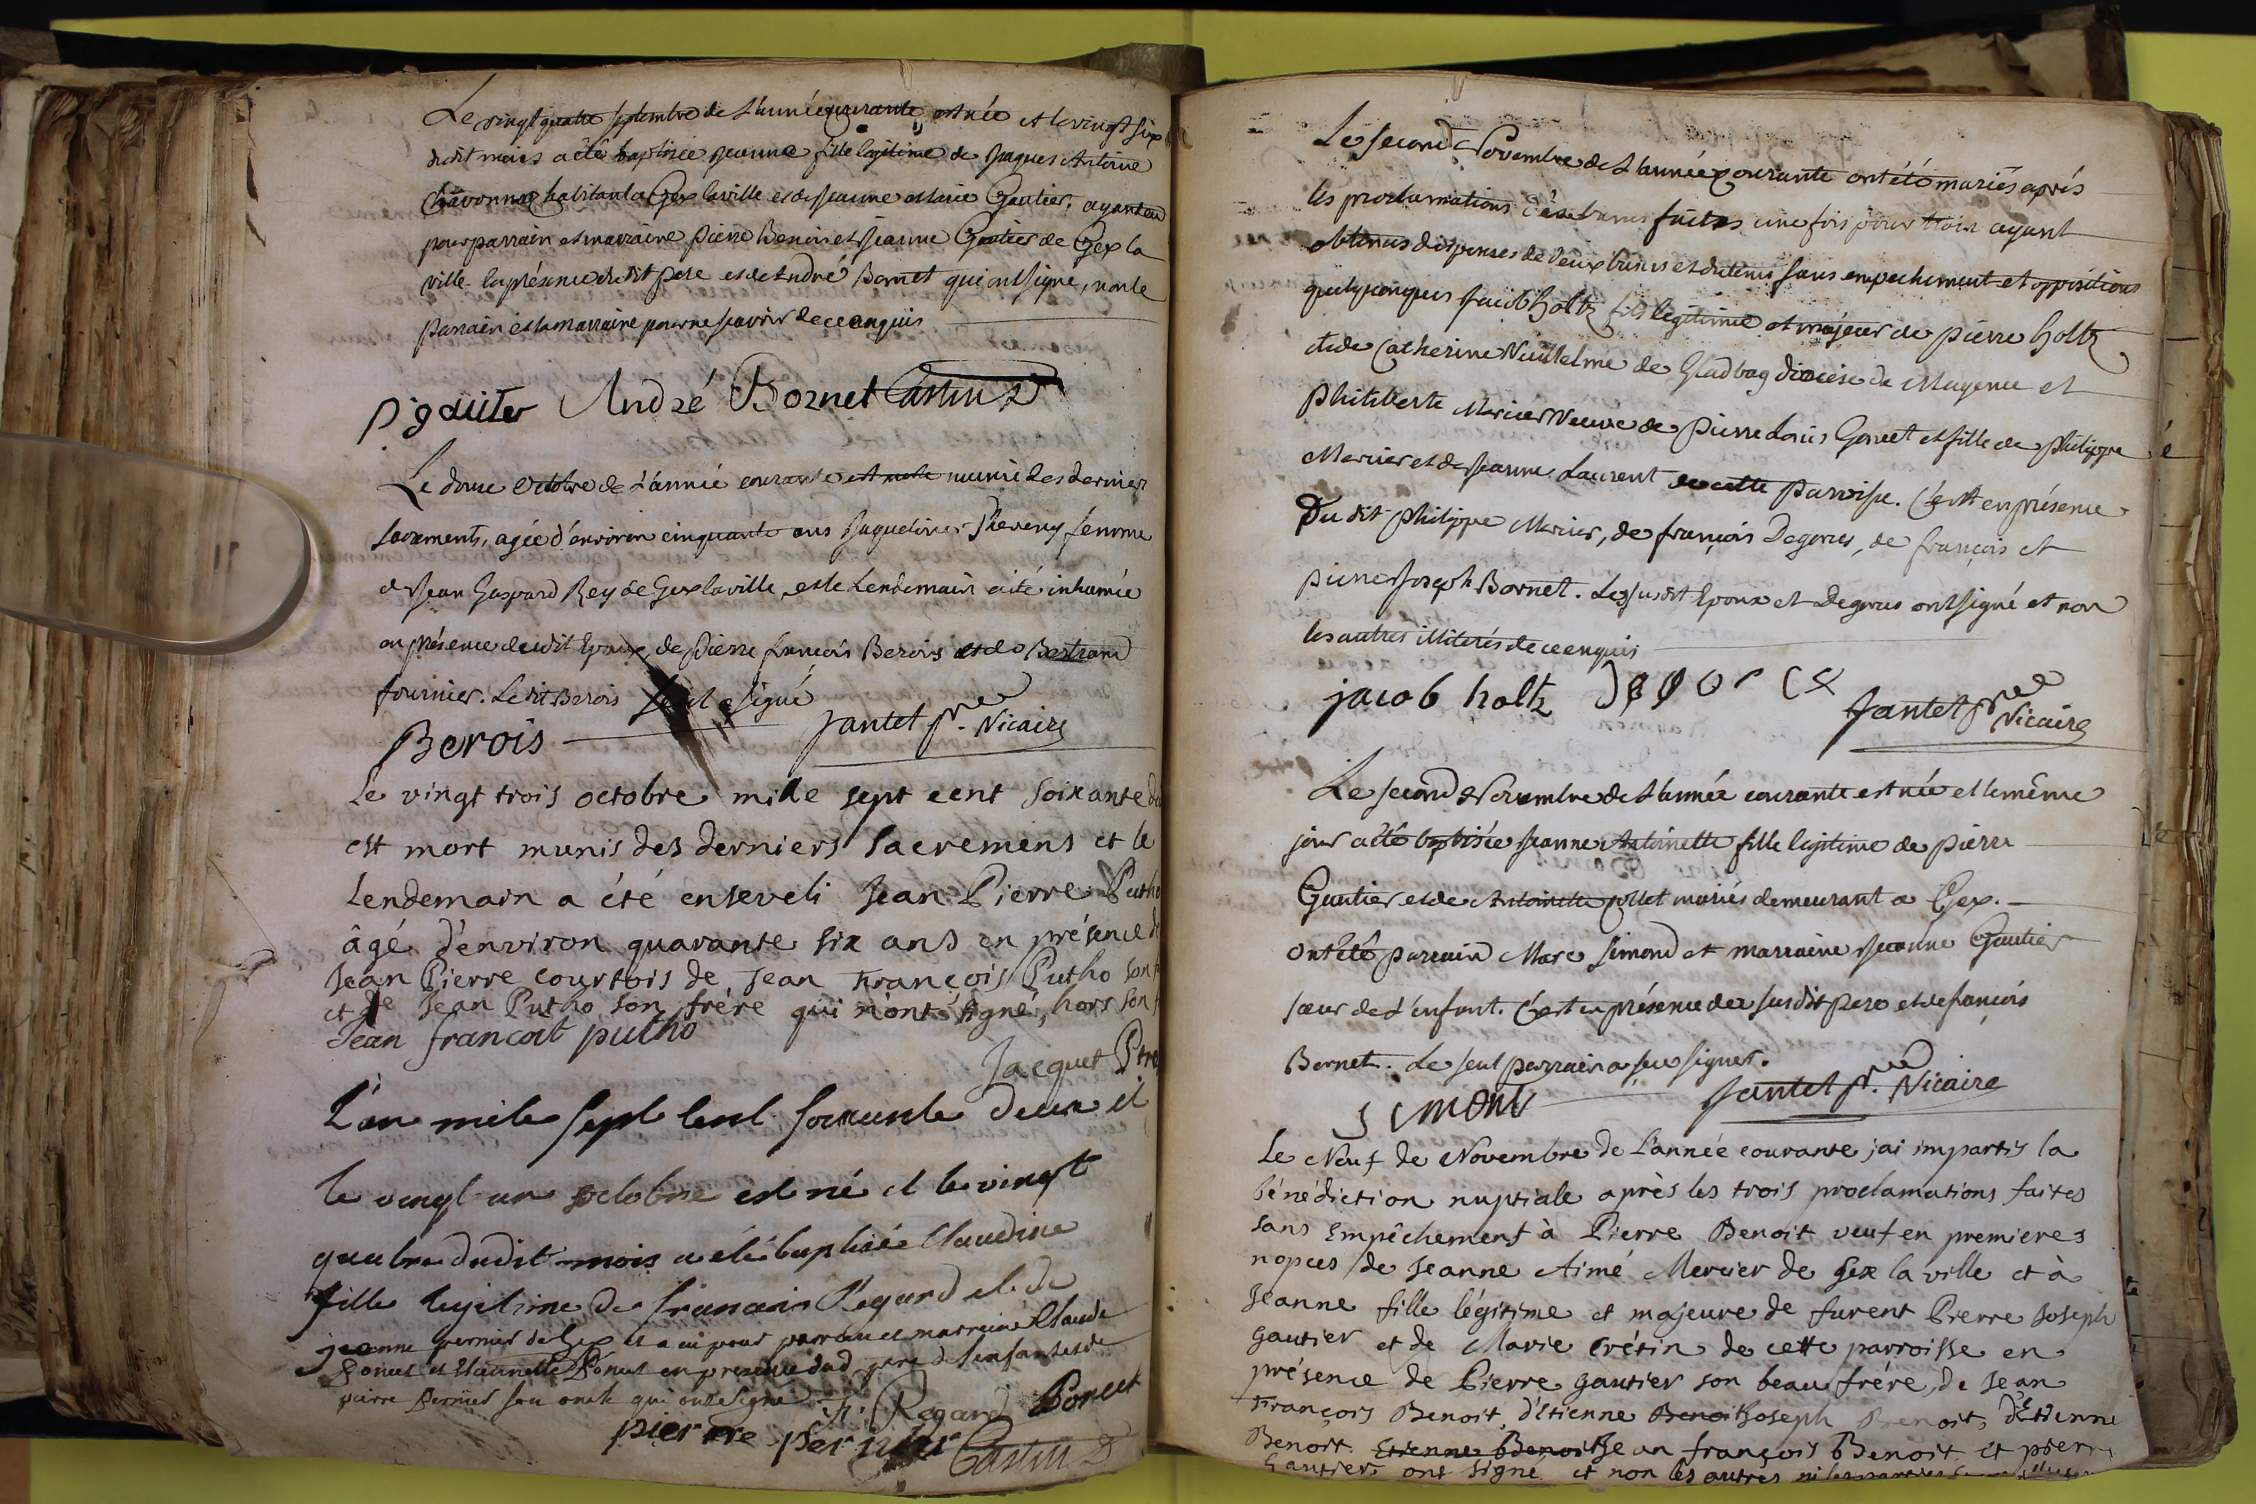 Le vingt quatre septembre de l'année courante est née et le vingt six
dudit mois a été baptisée jeanne fille legitime de Jaques Antoine
Chavonne habitant a Gex la ville et de jeanne Marie Gautier, ayant eu
pour parrain et marraine pierre Benoit et jeanne Gautier de Gex la
ville. En présence du dit pere et de André Bornet qui ont signé, non le
parrain et la marraine pour ne scavoir de ce enquis
P gautier André Bornet Castin
Le douze Octobre de l'année courante est morte munie des derniers
sacrements, agée d'environ cinquante ans Jaqueline femme
de Jean Gaspard Rey de Gex la ville, et le Lendemain a été inhumée
en présence du dit Epoux, de Pierre françois Berois et de Bertrand
fournier. Le dit Berois seul a signé
Berois Jantet ptre. Vicaire
Le vingt trois octobre mille sept cent soixante
est mort munis des derniers sacremens et le
Lendemain a été enseveli Jean Pierre Putho
âgé d'environ quarante six ans en présence
Jean Pierre courtois de Jean François Putho son
et de Jean Putho son frére qui n'ont signé, hors son
Jean francoit putho
Jacquet Ptre
L'an mile sept cent soixante deux et
le vingt un octobre est né et le vingt
quatre dudit mois a eté baptisée Claudine
fille legitime de francois Regard et de
jeanne pernier de Gex et a eu pour parrain et marreine Claude
Poncet et Claudine Poncet en presence dud pere de l'enfant et de
pierre pernier son oncle qui ont signé F. Regard Poncet
pierre pernier Castin
Le second Novembre de l'année courante ont été mariés aprés
les proclamations des bans faites une fois pour trois ayant
obtenus dispenses de deux bans et detenus sans empechement et oppositions
quelquonques Jacob holtz fils legitime et majeur de pierre holtz
et de Catherine de Gladbag diocèse de Mayence et
philiberte Mercier Veuve de pierre Louis Goncet et fille de philippe
Mercier et de jeanne Laurent de cette paroisse. C'est en présence
Du dit philippe Mercier, de françois Degorces, de françois et
pierre Joseph Bornet. Les susdit Epoux et Degorces ont signé et non
les autres illiterés de ce enquis
jacob holtz Jantet ptre Vicaire
Le second Novembre de l'année courante est née et le même
jour a été baptisée jeanne Antoinette fille legitime de pierre
Gautier et de Antoinette pollet mariés demeurant a Gex.
ont été parrain Marc Simond et marraine jeanne Gautier
sœur de l'enfant. C'est en présence du susdit pere et de francois
Bornet. Le seul parrain a sçu signer.
Simont Jantet ptre. Vicaire
Le Neuf de Novembre de l'année courante j'ai impartis la
bénédiction nuptiale après les trois proclamations faites
sans Empêchement à Pierre Benoit veuf en premieres
nopces de Jeanne Aimé Mercier de Gex la ville et à
Jeanne fille légitime et majeure de furent Pierre Joseph
Gautier et de Marie Crétin de cette parroisse en
présence de Pierre Gautier son beau frére, de Jean
François Benoit, d'Etienne Joseph Benoit, d'Etienne
Benoit. Etienne Benoit Jean françois Benoit et pierre
Gautier ont signé et non les autres